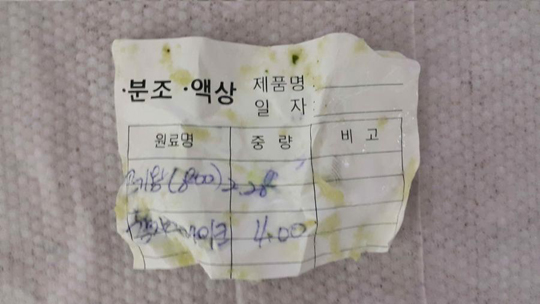 ·분조 ·액상 제품명
일 자
원료명 중 량 비 고
(800) 2.28
4.00